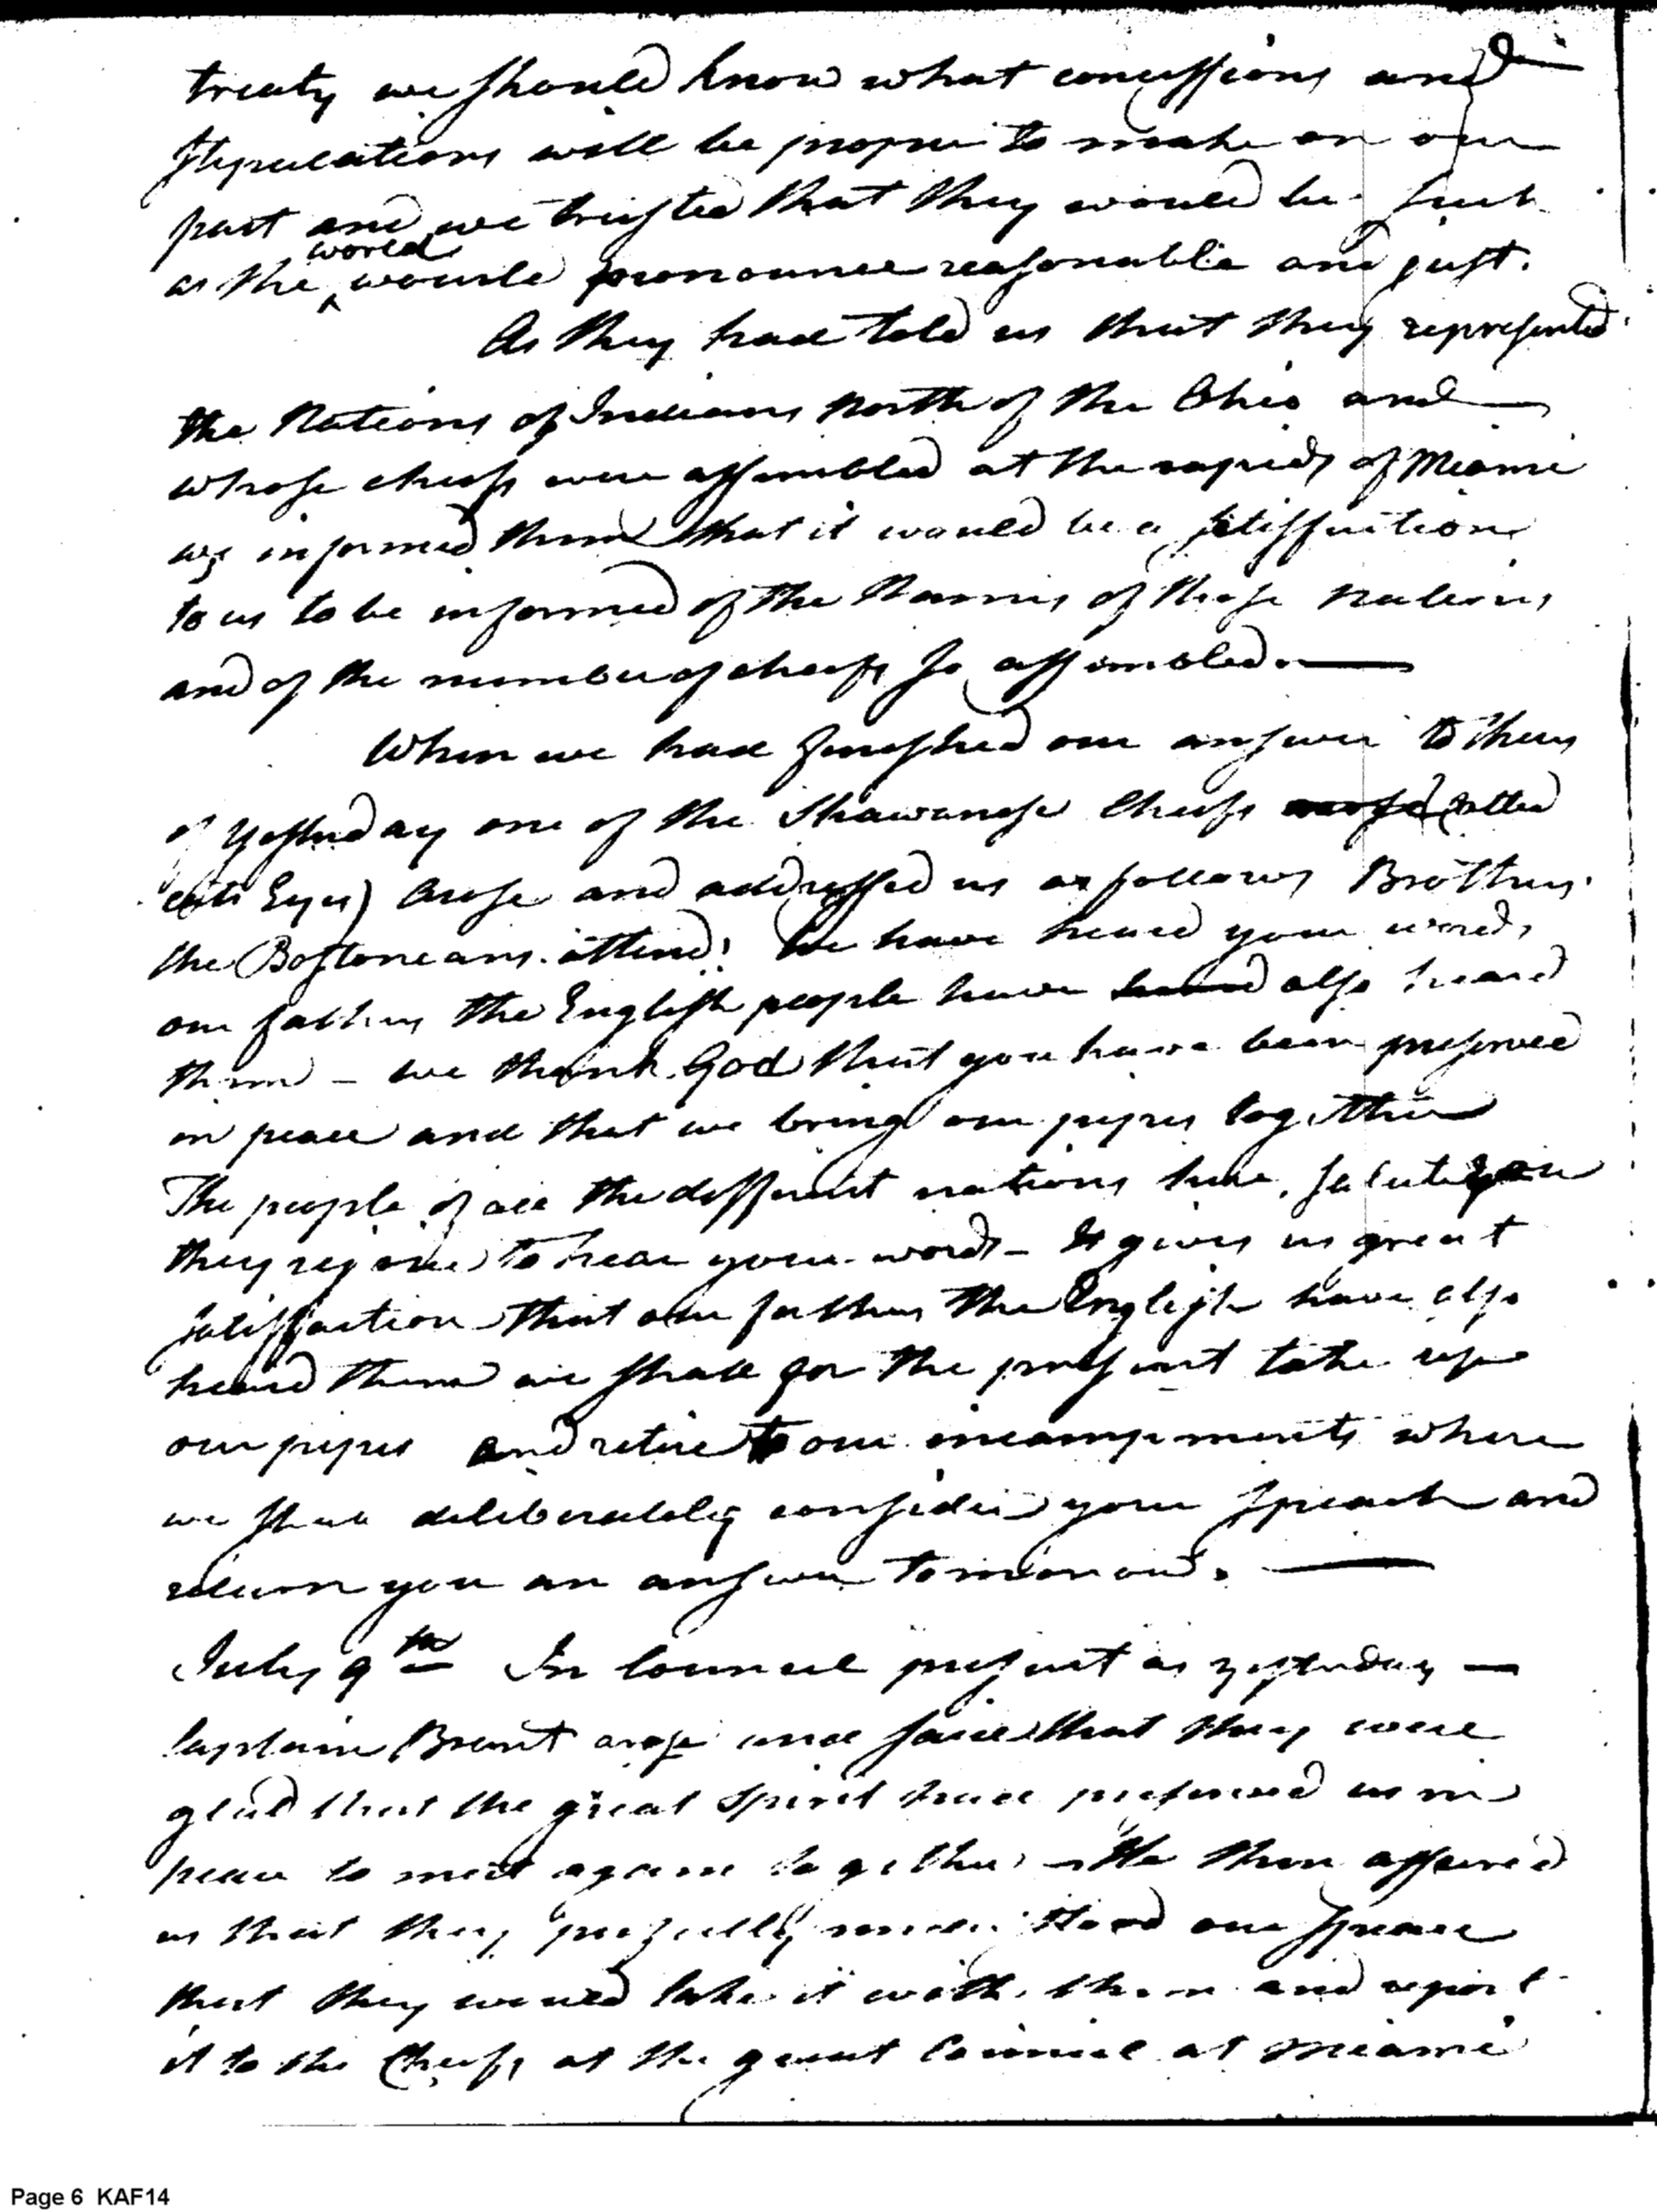 treaty we should know what concessions and
stipulations will be proper to make on our
part and we trusted that they would be such
world
as the ^ would pronounce reasonable and just.
As they had told us that they represented
the Nations of Indians North of the Ohio and
whose cheefs were assembled at the rapids of Miami
we informed them that it would be a satisfaction
to us to be informed of the Names of those Nations
and of the number of cheefs so assembled. —
When we had finished our answer to theirs
of yesterday one of the Shawanese Cheefs arose (called
cats Eyes) arose and addressed us as follows Brothers.
the Bostoneans. attend! We have heard your words,
our fathers the English people have heard also heard
them – we thank God that you have been preserved
in peace and that we bring our pipes together
The people of all the different nations here, salute you
they rejoice to hear your words – It gives us great
satisfaction that our fathers the English have also
heard them we shall for the present take up
our pipes and retire to our incampments where
we shall deliberately consider your speach and
return you an answer tomorrow. —
July 9th In Council present as yesterday —
Captain Brant arose and said that they were
glad that the great Spirit had preserved us in
peace to meet again together – He then assured
us that they perfectly understood our speach
that they would take it with them and report
it to the Cheefs at the great Council at Miami
Page 6 KAF14